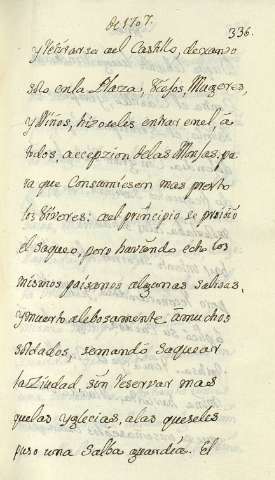 de 1707.
336.
y retirarse ael Castillo, dexando
solo en la Plaza; Viejos, Mugeres,
y Niños, hizoseles entrar en el, á
todos, a ecepzion de las Monjas, pa
ra que Consumiesen mas presto
los Viveres: ael principio se proivió
el saqueo, pero haviendo echo los
mismos paisanos algunas salidas,
y muerto alebosamente á muchos
soldados, se mandó saquear
la Ziudad, sin reservar mas
que las Yglecias, a las que se les
puso una Salba guardia. El